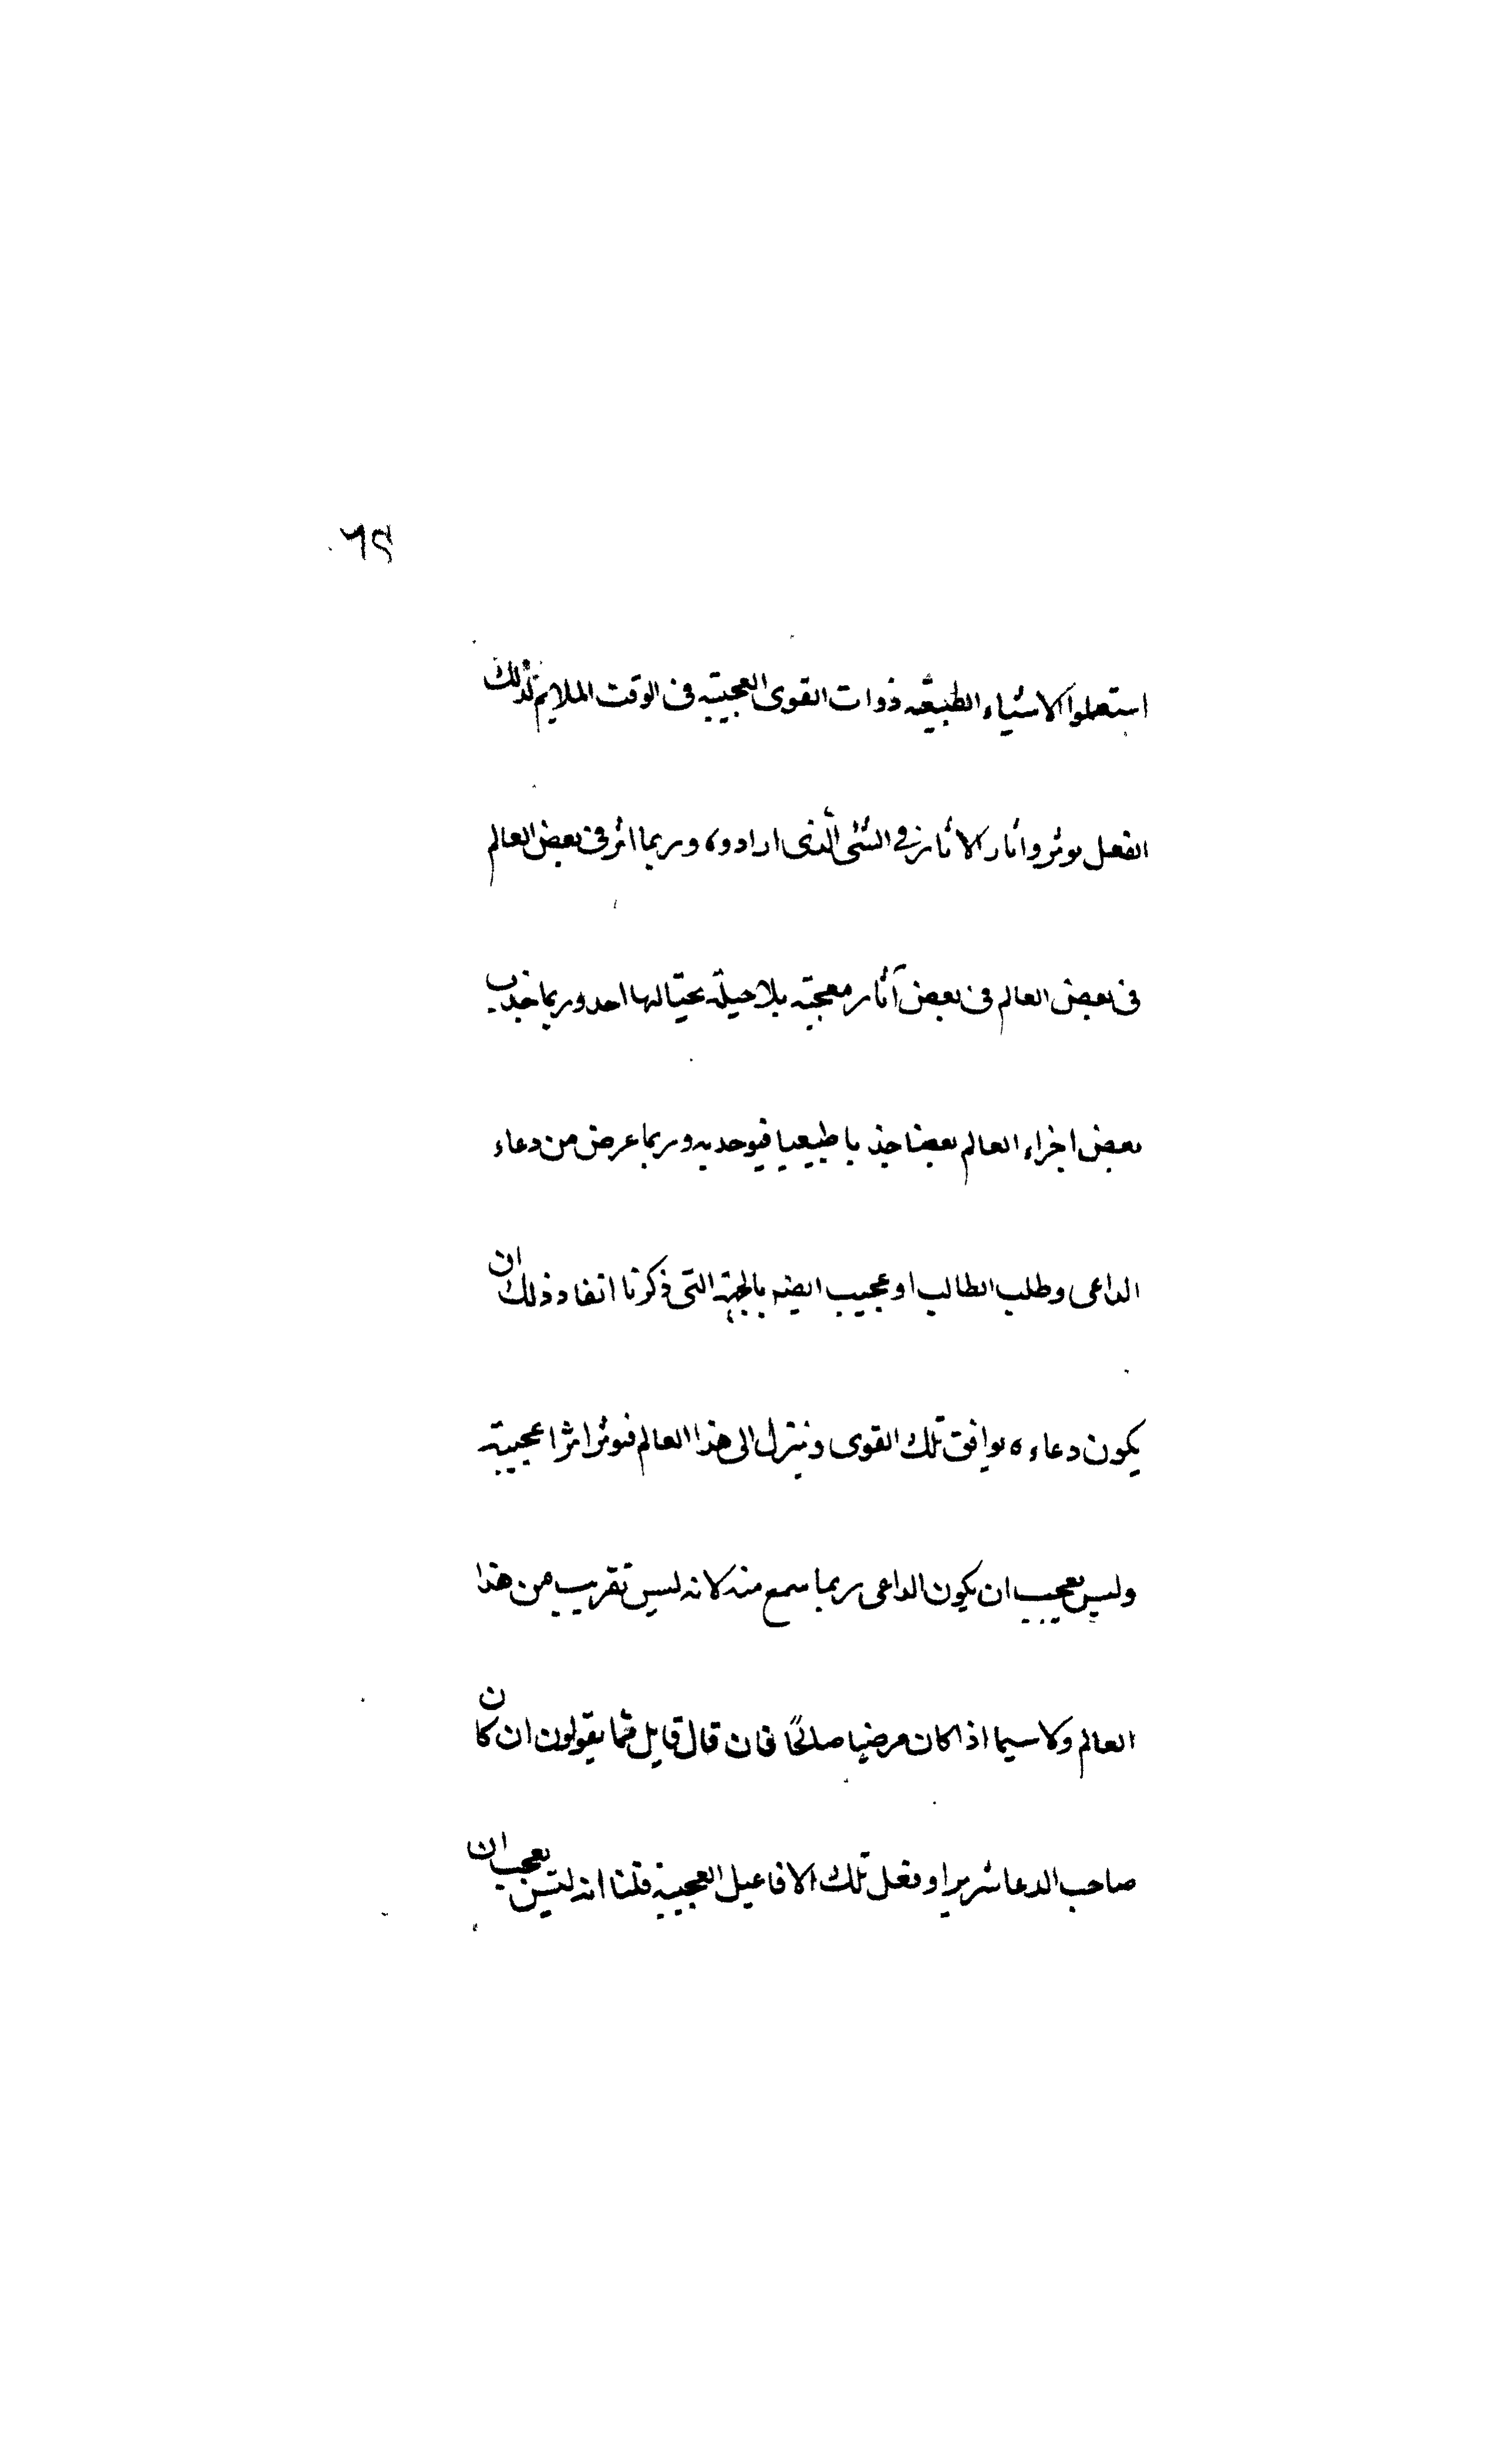 ٦٩
استعملوا الاشياء الطبيعيه ذوات القوى العجيبته فى الوقت الملايم لذلك
الفعل يوثر واثار الاثار فى الشئى الذى ارادوه وربما اثر فى بعض العالم
فى بعض العالم فى بعض آثار معجبته بلا حيلة يحتيالها احد وربما جذب
بعض اجزاء العالم بعضا جذبا طبيعيا فيوحد به وربما عرض من دعاء
الداعى وطلب الطالب او عجيب ايضه بالجهة التى ذكرنا انفا وذلك ان
يكون دعاءه يوافق تلك القوى وينزل الى هذا العالم فيوثر اثرا عجيبته
وليس بعجيب ان يكون الداعى ربما سمع منه لانه ليس تقريب من هذا
العالم ولا سيما اذا كان مرضيا صالحًا فان قال قايل فما يقولون ان كان
صاحب الدعا شريرا وفعل تلك الافاعيل العجيبة قلنا انه ليس بعجب ان